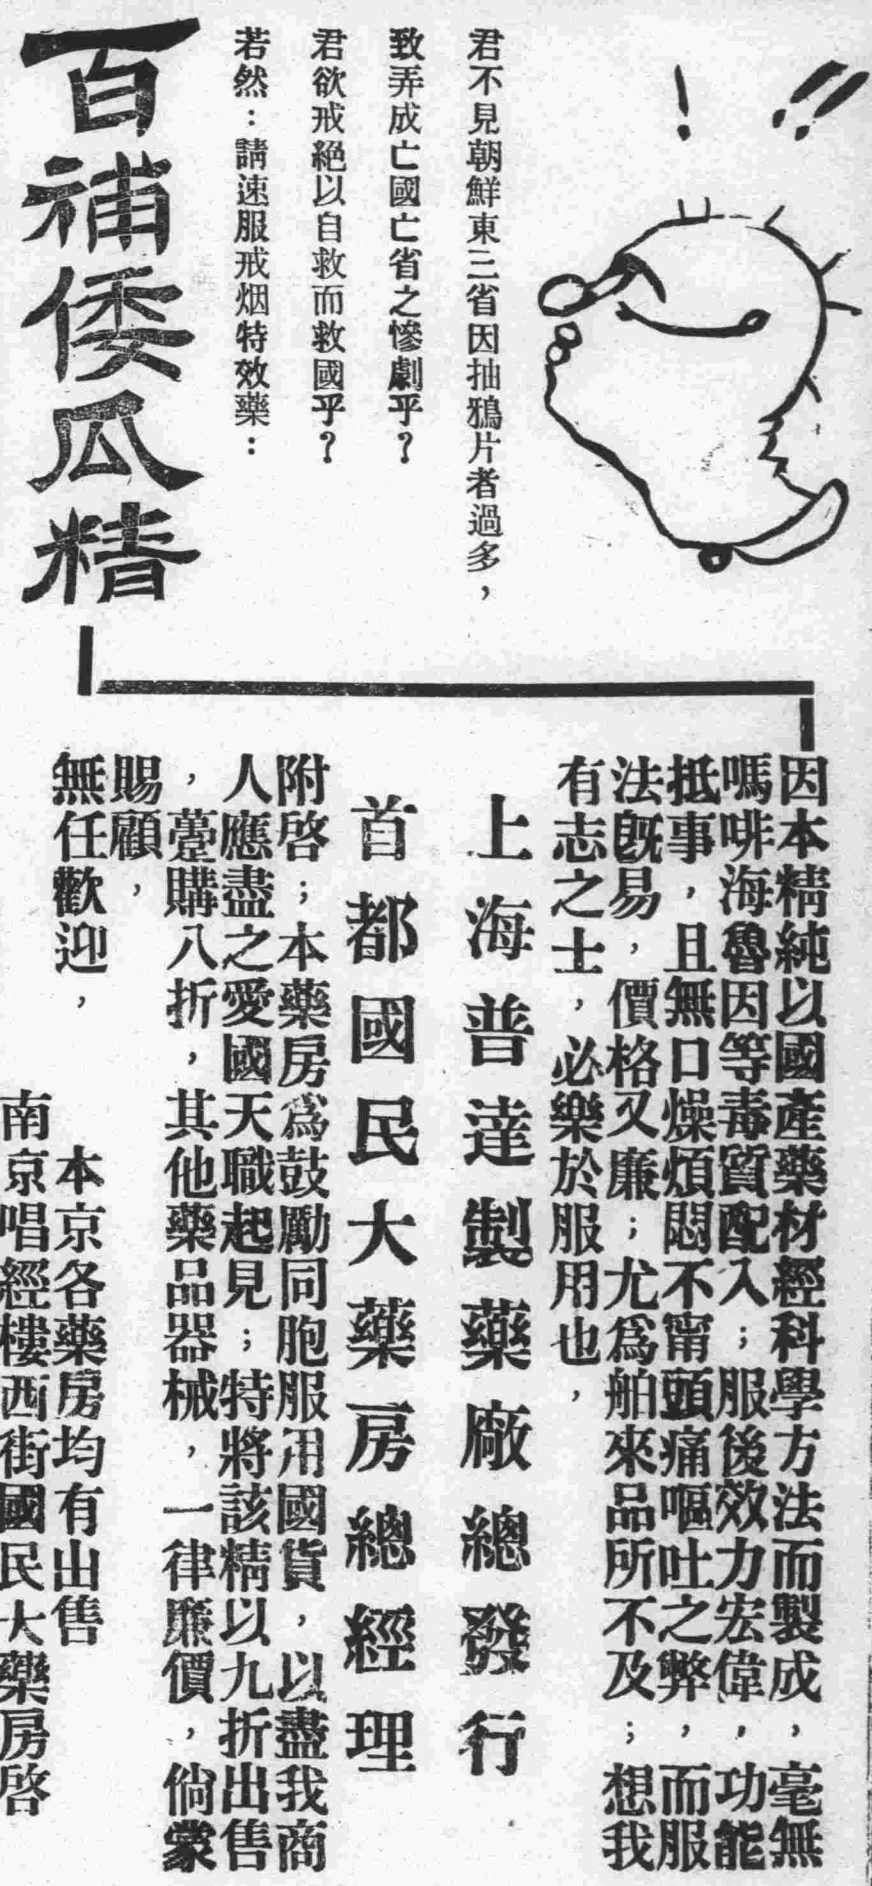 ！
！！
君不見朝鮮東三省因抽鴉片者過多，
致弄成亡國亡省之慘劇乎？
君欲戒絕以自救而救國乎？
若然：請速服戒烟特效藥：
百補倭瓜精
因本精純以國產藥材經科學方法而製成，毫無
嗎啡海魯因等毒質配入；服後效力宏偉，功能
抵事，且無口燥煩悶不甯頭痛嘔吐之弊，而服
法旣易，價格又廉；尤爲舶來品所不及；想我
有志之士，必樂於服用也，
上海普達製藥廠總發行
首都國民大藥房總經理
附啓；本藥房爲鼓勵同胞服用國貨，以盡我商
人應盡之愛國天職起見；特將該精以九折出售
，躉購八折，其他藥品器械，一律廉價，倘蒙
賜顧，
無任歡迎，
本京各藥房均有出售
南京唱經樓西街國民大藥房啓